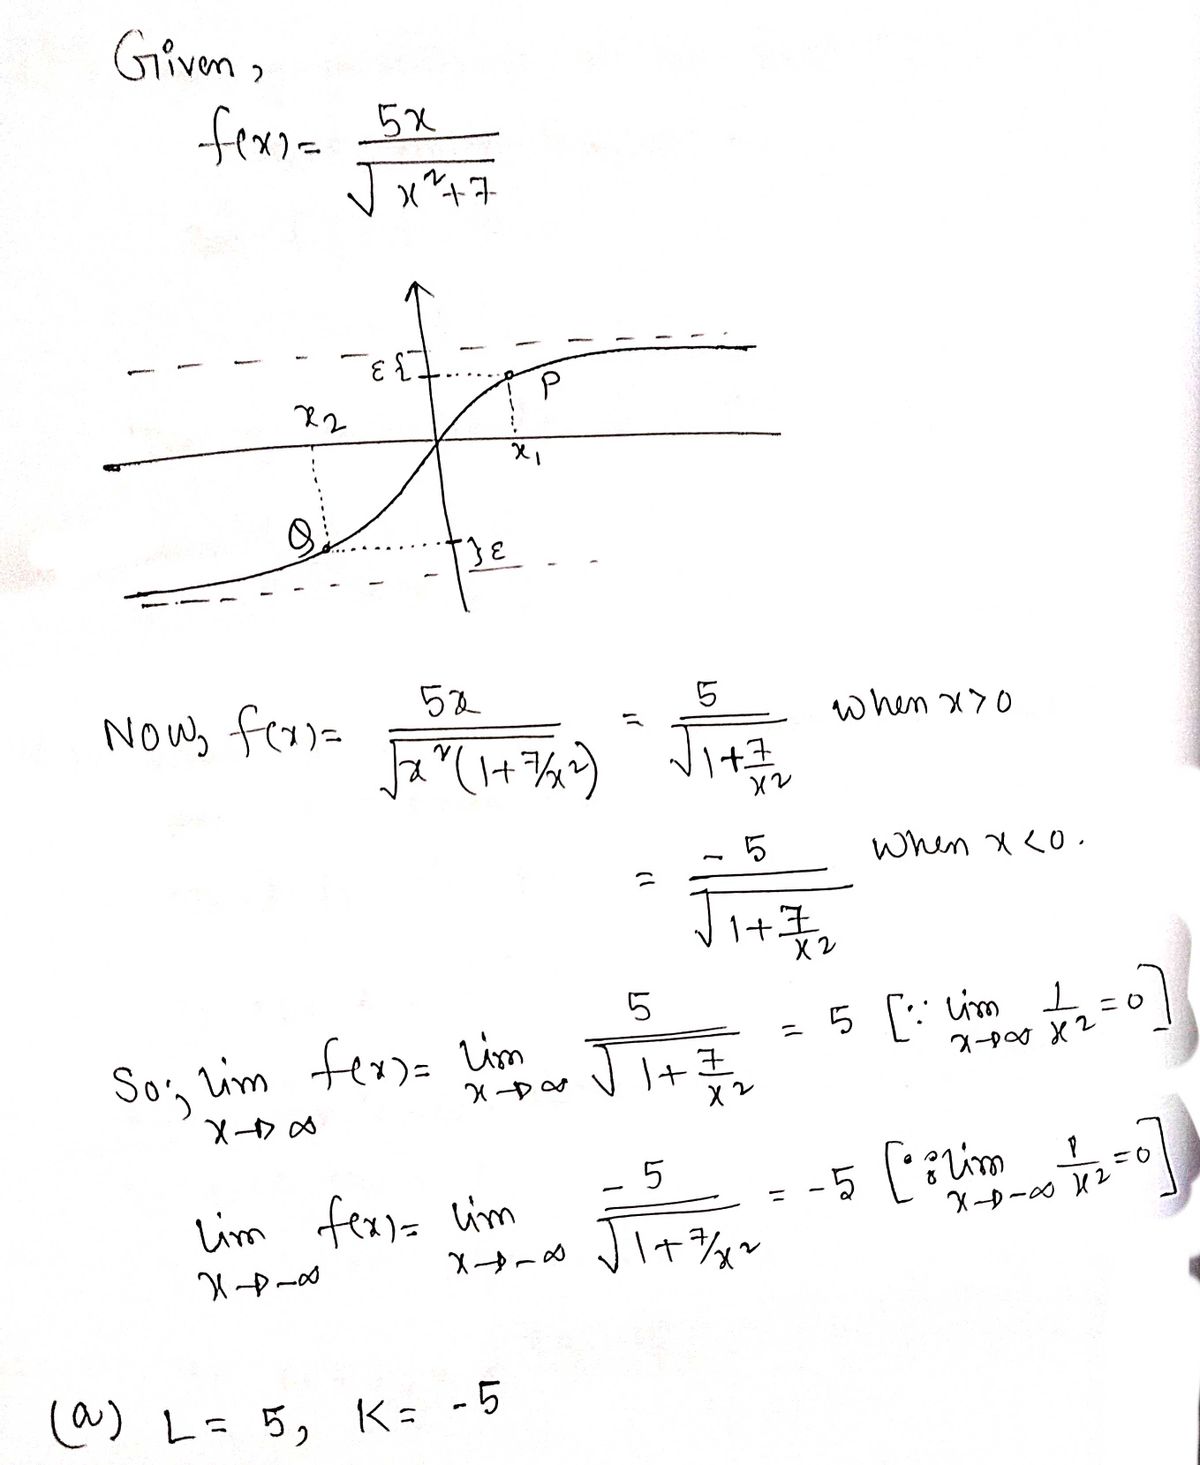 Given,
f(x) = 5x / √(x²+7)
ε{
P
x₂
x₁
Q
}ε
Now, f(x) = 5x / √(x²(1+7/x²)) = 5 / √(1+7/x²) when x>0
= -5 / √(1+7/x²) when x<0.
So, lim x→∞ f(x) = lim x→∞ 5 / √(1+7/x²) = 5 [∵ lim x→∞ 1/x² = 0]
lim x→-∞ f(x) = lim x→-∞ -5 / √(1+7/x²) = -5 [∵ lim x→-∞ 1/x² = 0]
(a) L = 5, K = -5